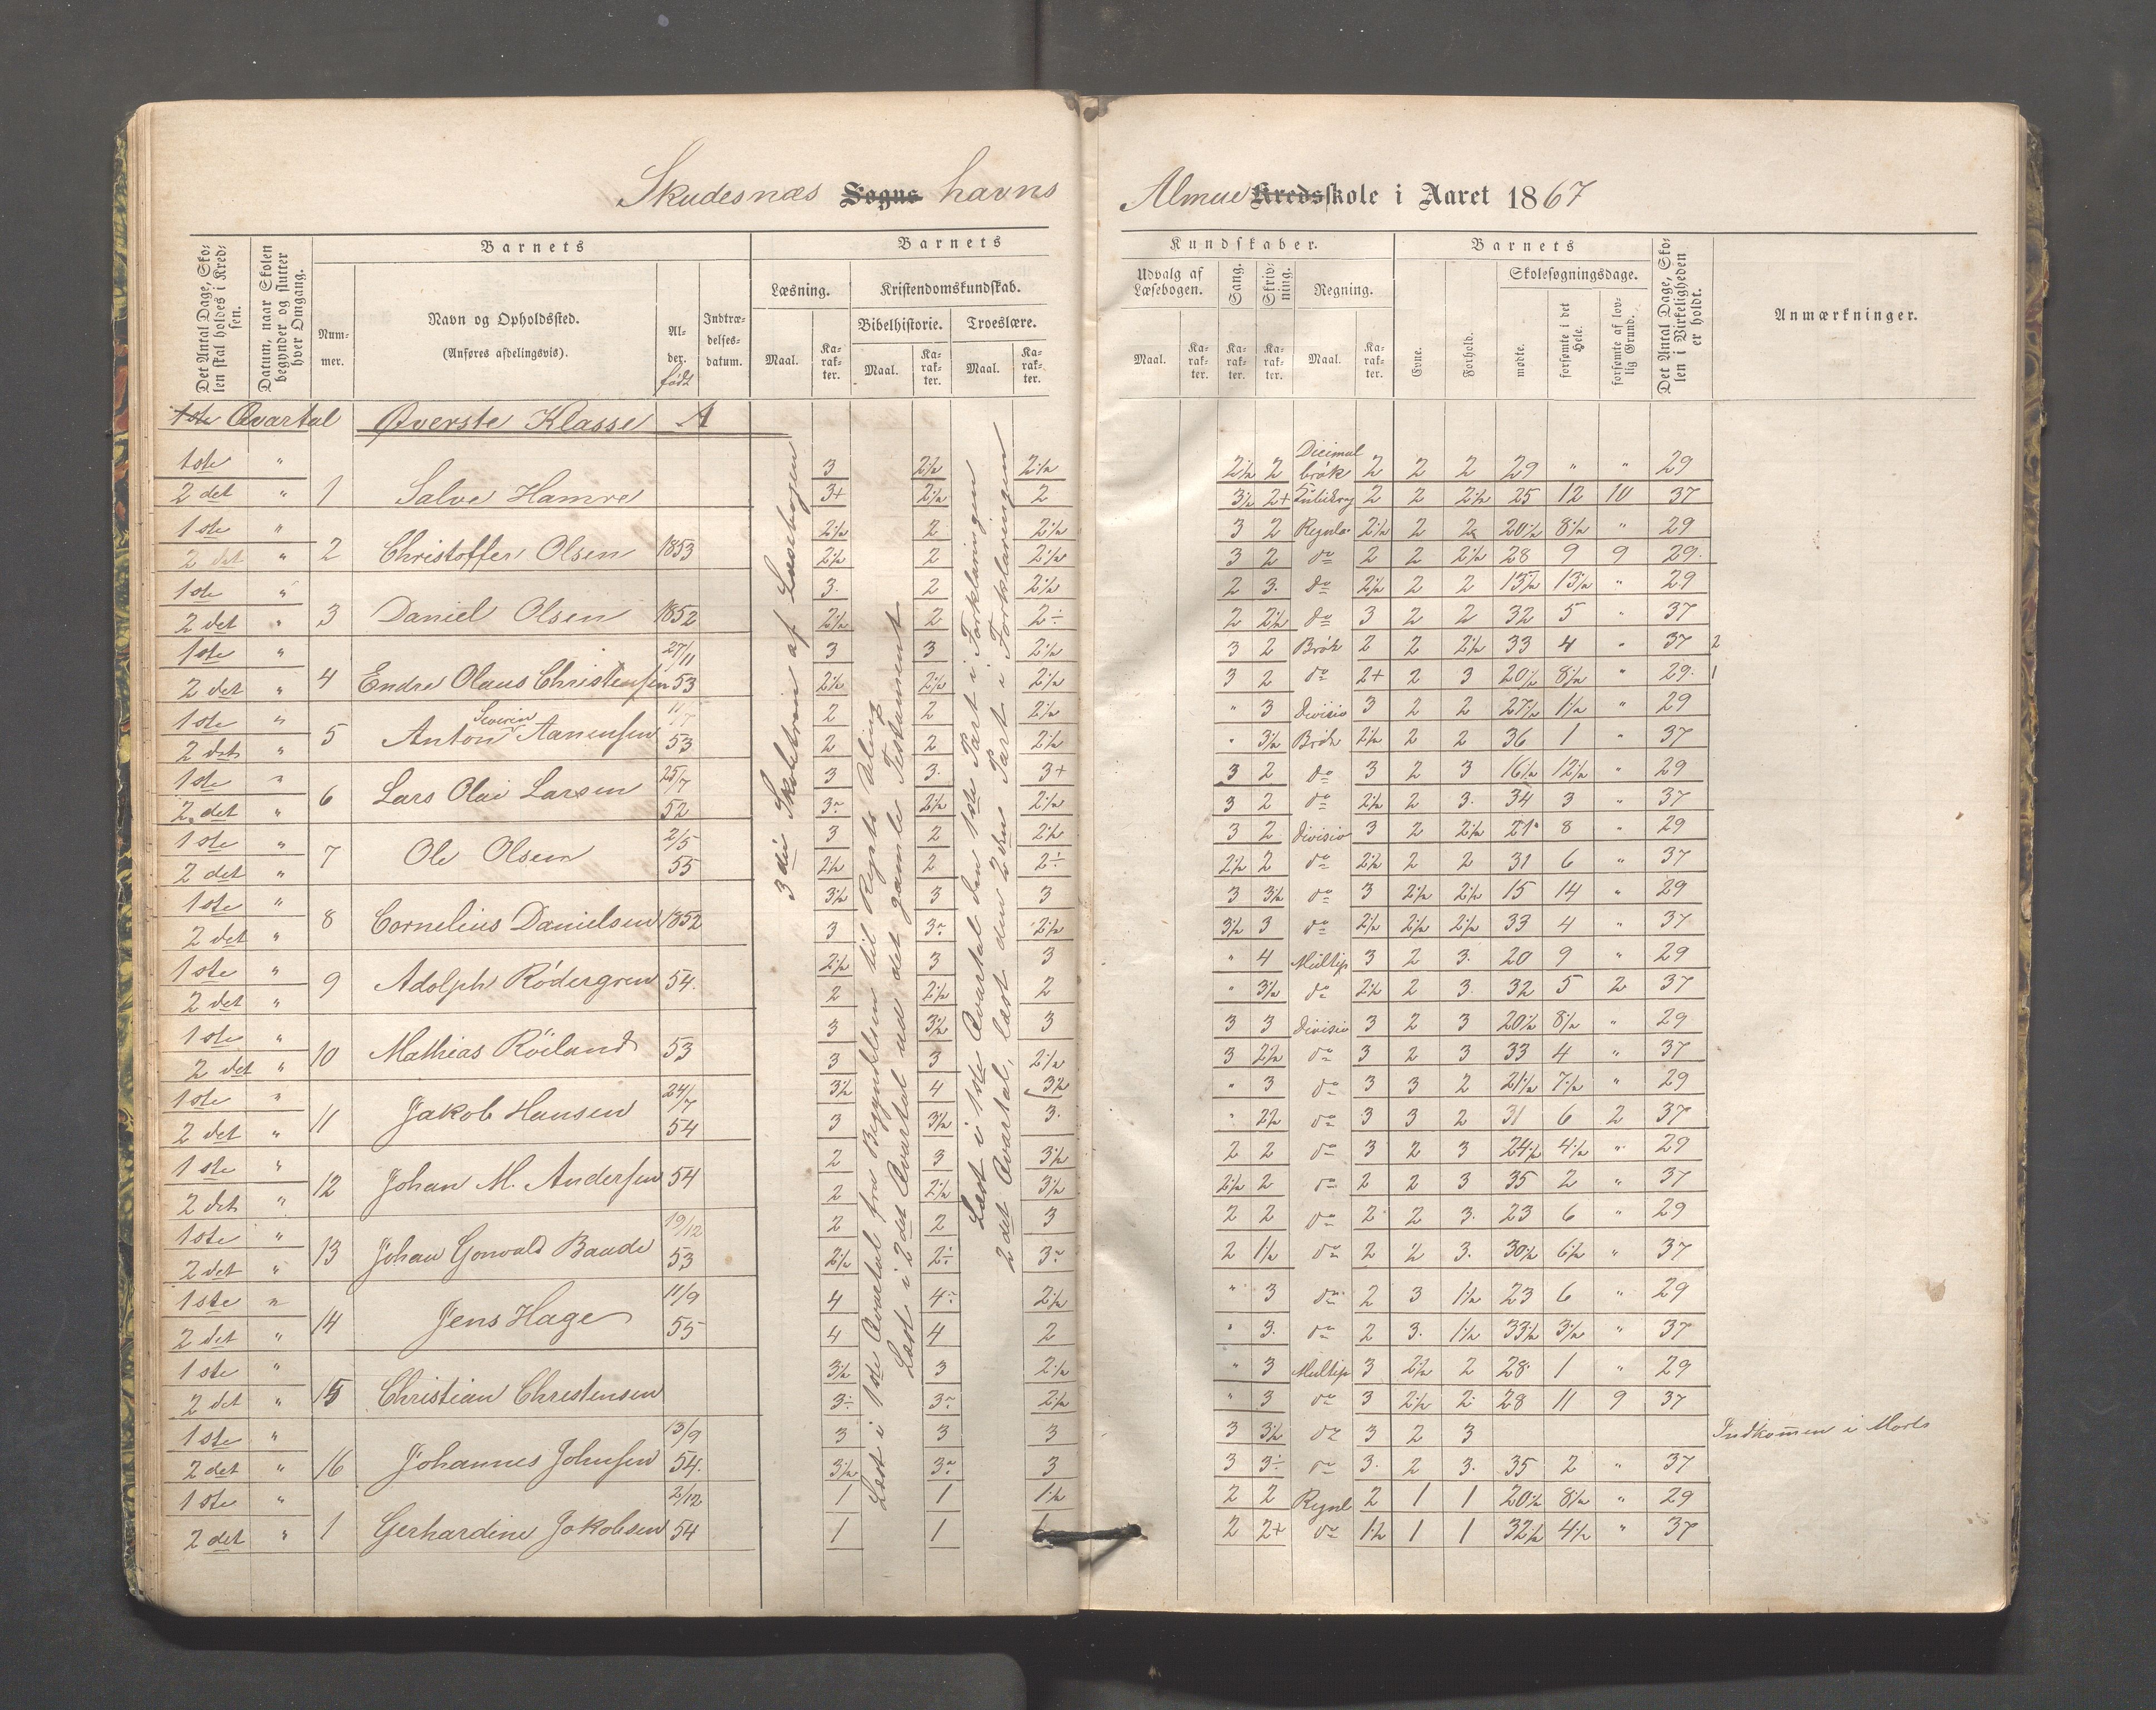 Skudesnæs Sogns havns
Almue Kredsskole i Aaret 1867
Det Antal Dage, Skolen skal holdes i Kredsen.
Datum, naar Skolen begynder og slutter hver Omgang.
Barnets
Nummer.
Navn og Opholdssted.
(Anføres afdelingsvis).
Alder. født
Indtrædelsesdatum.
Barnets
Læsning.
Maal.
Karakter.
Kristendomskundskab.
Bibelhistorie.
Maal.
Karakter.
Troeslære.
Maal.
Karakter.
Kundskaber.
Udvalg af Læsebogen.
Maal.
Karakter.
Sang.
Karakter.
Skrivning.
Karakter.
Regning.
Maal.
Karakter.
Barnets
Evne.
Forhold.
Skolesøgningsdage.
mødte.
forsømte i det Hele.
forsømte af lovlig Grund.
Det Antal Dage, Skolen i Virkeligheden er holdt.
Anmærkninger.
1ste Qvartal Øverste Klasse A
3die Skoletrin af Læsebogen
Læst i 1ste Qvartal fra Begyndelsen til Rigets Deling
Læst i 2det Qvartal ud det gamle Testament
Læst i 1ste Qvartal den 1ste Part i Forklaringen
2det Qvartal, læst den 2den Part i Forklaringen
1ste " 3 2½ 2½ 2½ 2 Decimalbrök 2 2 2 29 " " 29
2det " 1 Salve Hamre 3+ 2½ 2 3½ 2+ 2 2 2½ 25 12 10 37
1ste " 2½ 2 2½ 3 2 Regula 2½ 2 2 20½ 8½ " 29
2det " 2 Christoffer Olsen 1853 2½ 2 2½ 3 2 do 2 2 2½ 28 9 9 29.
1ste " 3. 2 2½ 2 3. do 2½ 2 2 13½ 13½ " 29
2det " 3 Daniel Olsen 1852 2½ 2 2÷ 2 2½ do 3 2 2 32 5 " 37
1ste " 27/11 3 3 2½ 3 2 Brök 2 2 2½ 33 4 " 37 2
2det " 4 Endre Olaus Christensen 53 2½ 2½ 2½ 3 2 do 2+ 2 3 20½ 8½ " 29. 1
1ste " 11/7 2 2 2½ " 3 Divisio 3 2 2 27½ 1½ " 29
2det " 5 Anton Severin Aanensen 53 2 2 2½ " 3½ Brök 2½ 2 2 36 1 " 37
1ste " 25/7 3 3. 3+ 3 2 do 3 2 3 16½ 12½ " 29
2det " 6 Lars Olai Larsen 52 3 2½ 2½ 3 2 do 2½ 2 3. 34 3 " 37
1ste " 2/5 3 2 2½ 3 2 Divisio 3 2 2½ 21 8 " 29
2det " 7 Ole Olsen 55 2½ 2 2÷ 2½ 2 do 2½ 2 2 31 6 " 37
1ste " 3½ 3 3 3 3½ do 3 2½ 2½ 15 14 " 29
2det " 8 Cornelius Danielsen 1852 3 3 2½ 3½ 3 do 2½ 2½ 2½ 33 4 " 37
1ste " 2½ 3 3 " 4 Multip 3 2 3. 20 9 " 29
2det " 9 Adolph Rödergren 54. 2 2½ 2 " 3½ do 2½ 2 3. 32 5 2 37
1ste " 3 3½ 3 3 3 Divisio 3 2 3 20½ 8½ " 29
2det " 10 Mathias Röiland 53 3 3 2½ 3 2½ do 3 2 3 33 4 " 37
1ste " 24/7 3½ 4 3½ " 3 do 3 3 2 21½ 7½ " 29
2det " 11 Jakob Hansen 54 3 3½ 3. " 2½ do 3 3 2 31 6 2 37
1ste " 2 3 3½ 2 2 do 3 2 3 24½ 4½ " 29
2det " 12 Johan M. Andersen 54 2 2½ 3½ 2½ 2 do 2 2 3 35 2 " 37
1ste " 19/12 2 2 3 2 2 do 2 2 3. 23 6 " 29
2det " 13 Johan Gonvald Baade 53 2½ 2÷ 3 2 1½ do 2 2 3. 30½ 6½ " 37
1ste " 11/9 4 4 2½ " 3 do 2 3 1½ 23 6 " 29
2det " 14 Jens Hage 55 4 4 2 " 3. do 2 3. 1½ 33½ 3½ " 37
1ste " 3½ 3 2½ " 3 Multip 3 2½ 2 28 1 " 29
2det " 15 Christian Christensen 3÷ 3 2½ " 3 do 3 2½ 2 28 11 9 37
1ste " 13/9 3 3 3 3 3½ do 3 2 3 Indkommen i Marts
2det " 16 Johannes Johnsen 54. 3½ 3 3 3 3÷ do 3. 2 3. 35 2 " 37
1ste " 2/12 1 1 1½ 2 2 Regul 2 1 1 20½ 8½ " 29
2det " 1 Gerhardine Jakobsen 54 1 1 2 2+ do 1½ 1 1 32½ 4½ " 37